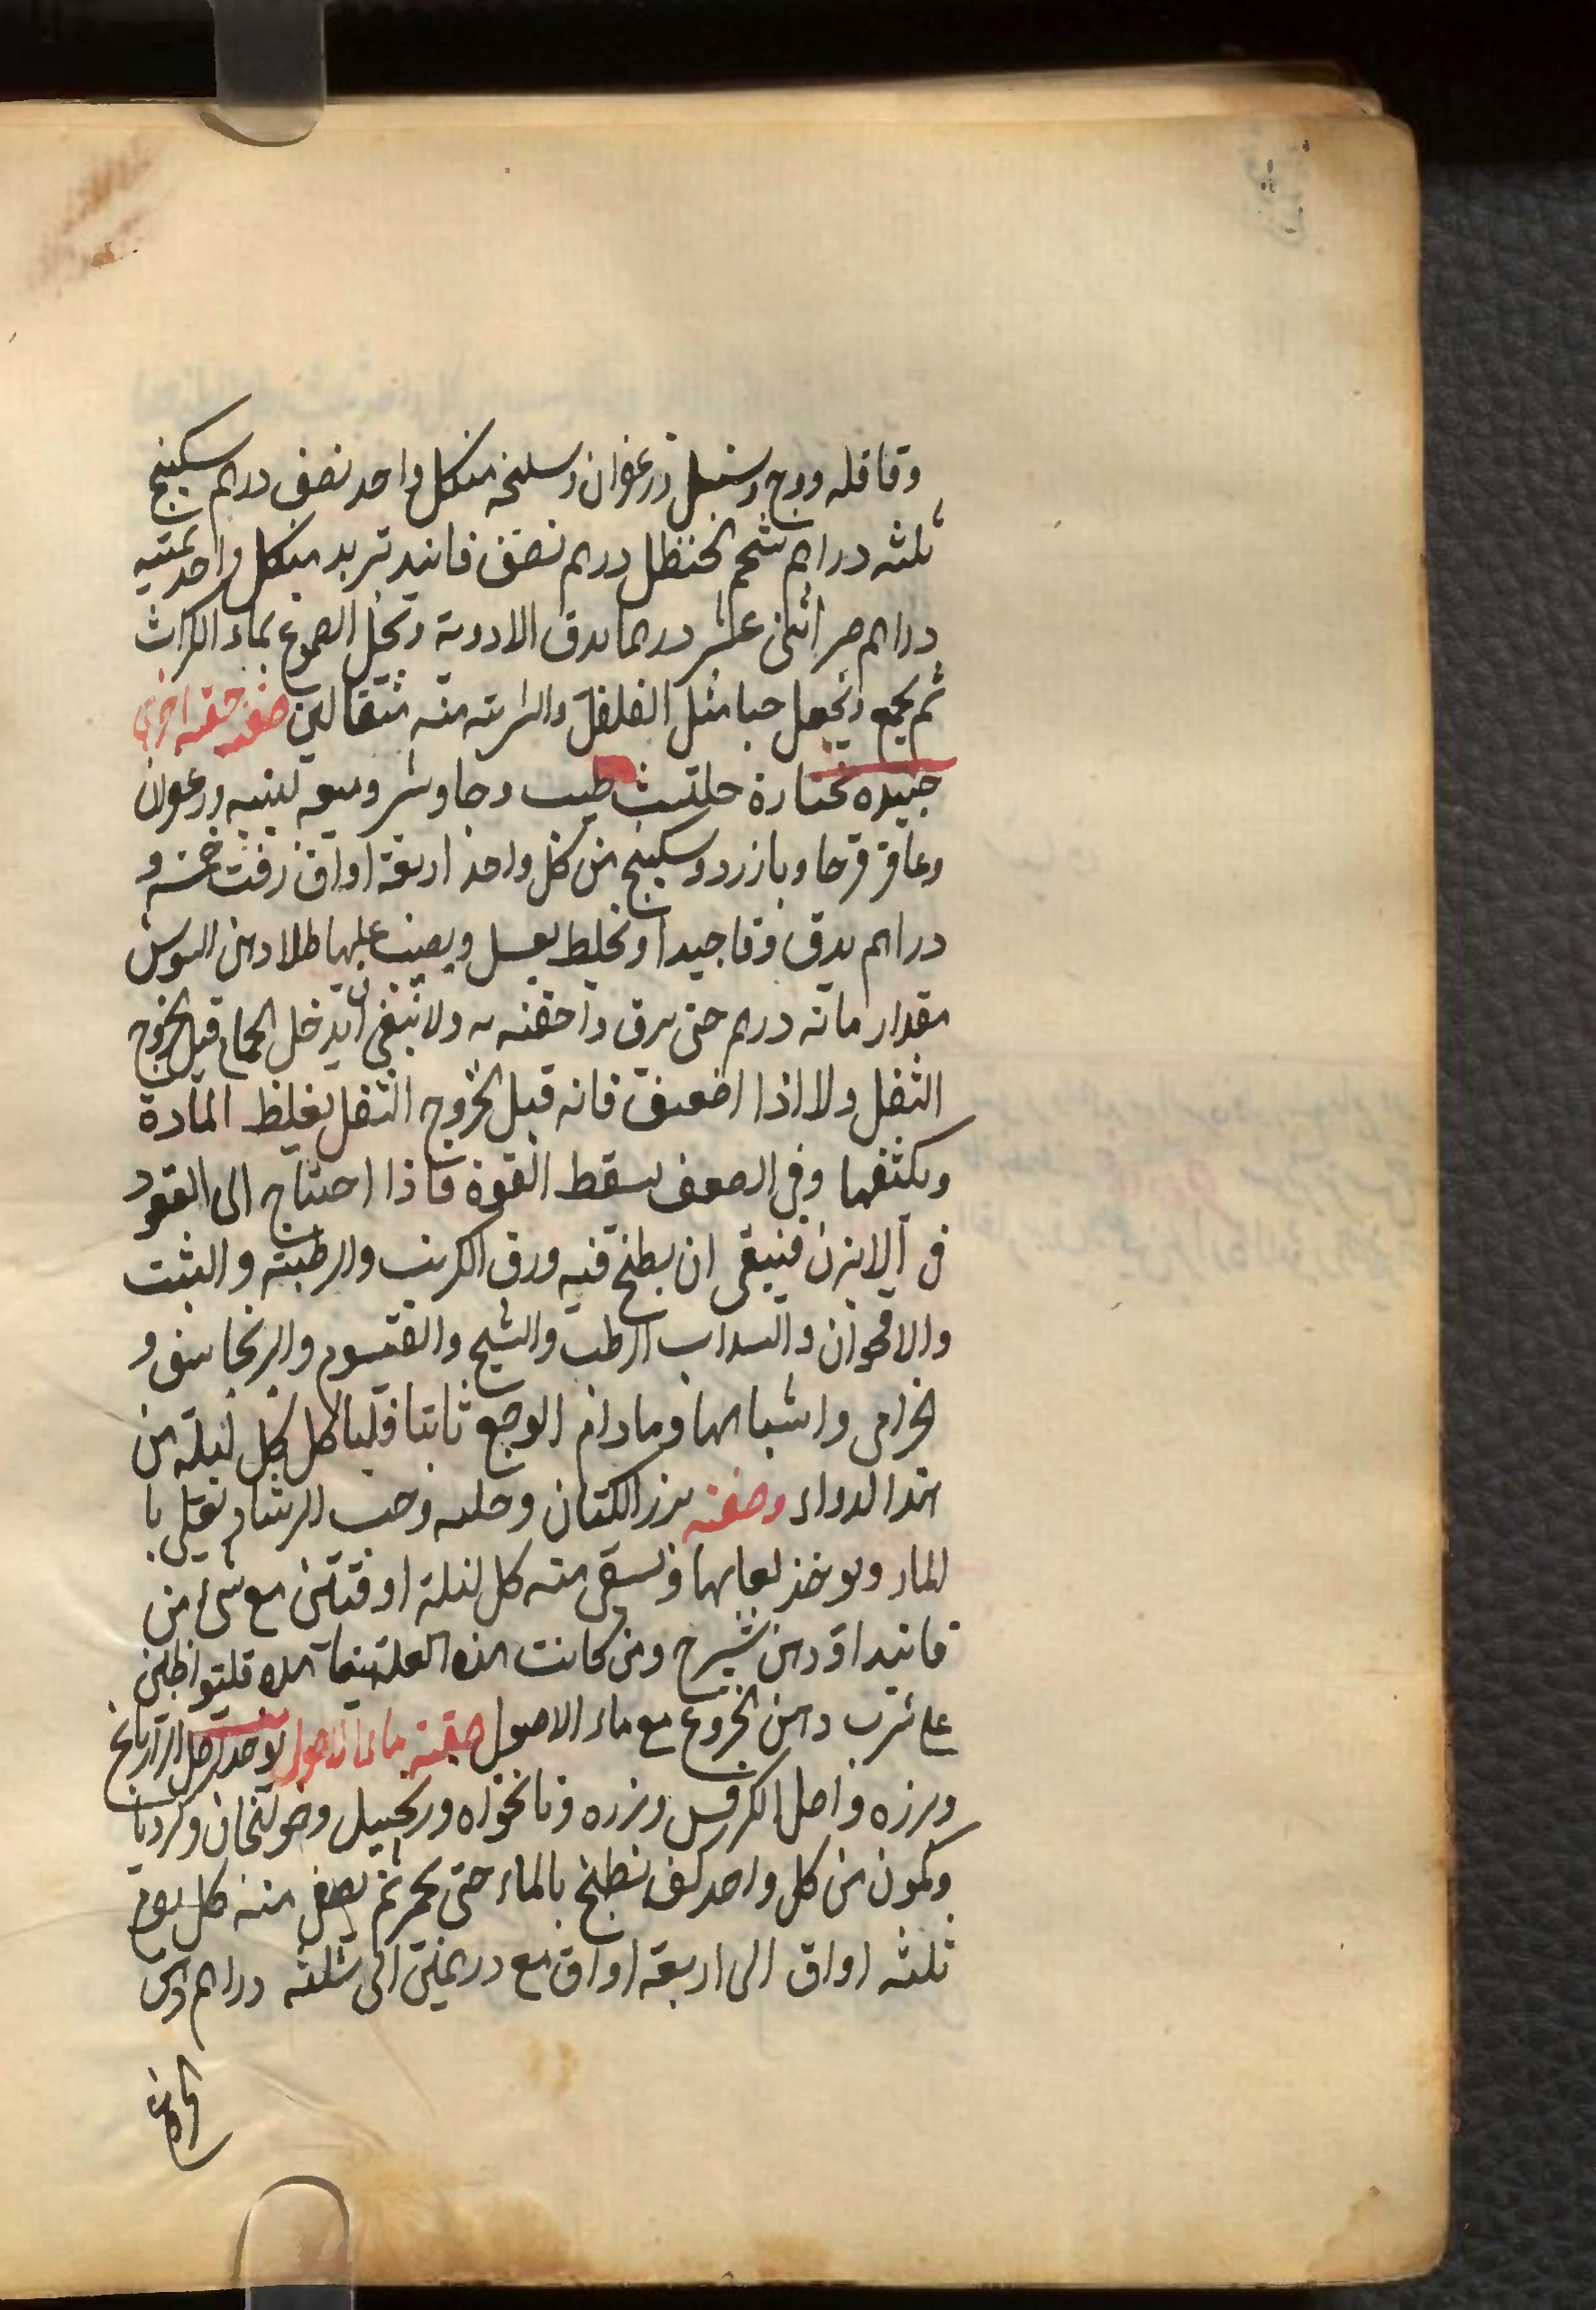 وقاقله ووج وسنبل وزعفران وسليخه منكل واحد نصف درهم سكبينج
ثلثه دراهم شحم الحنظل درهم نصف فانيد تربد منكل واحد ثمنيه
دراهم صبر اثنى عشر درهما يدق الادوية وتحل الصموغ بماء الكراث
ثم يجمع ويجعل حبا مثل الفلفل والشربته منه مثقالين صفة حقنه اخرى
جيده مختارة حلتيث طيب وجاوشير وميعه لبنيه وزعفران
وعاقرقرحا وبازرد وسكبينج من كل واحد اربعة اواق زفت خمسه و
دراهم يدق دقا جيدا ويخلط بعسل ويصب عليها طلا دهن السوسن
مقدار مائه درهم حتى يرق واحقنه به ولا ينبغى ان يدخل الحمام قبل الخروج
الثفل ولا اذا اضعف فانه قبل الخروج الثفل يغلظ المادة
ويكثفها وفى الضعف يسقط القوة فاذا احتاج الى القعود
فى الابزن فينبغى ان يطبخ فيه ورق الكرنب والرطبته والشبت
والاقحوان والسداب الرطب والشيح والقيسوم والبرنجاسف و
الخزامى واشباهها ومادام الوجع ثابتا فلياكل كل ليلة من
هذا الدواء وصفته بزر الكتان وحلبه وحب الرشاد يغلى با
الماء ويوخذ لعابها ويسقى منه كل ليلة اوقيتين مع شىء من
فانيد او دهن شيرج ومن كانت هذه العلة به فليواظبن
على شرب دهن الخروع مع ماء الاصول صفة ماء الاصول يوخذ اصل الرازيانج
وبزره واصل الكرفس وبزره ونانخواه وزنجبيل وخولنجان وكرويا
وكمون من كل واحد كف يطبخ بالماء حتى يحمر ثم يصفى منه كل يوم
ثلثه اواق الى اربعة اواق مع درهمين الى ثلثه دراهم دهن
الخروع